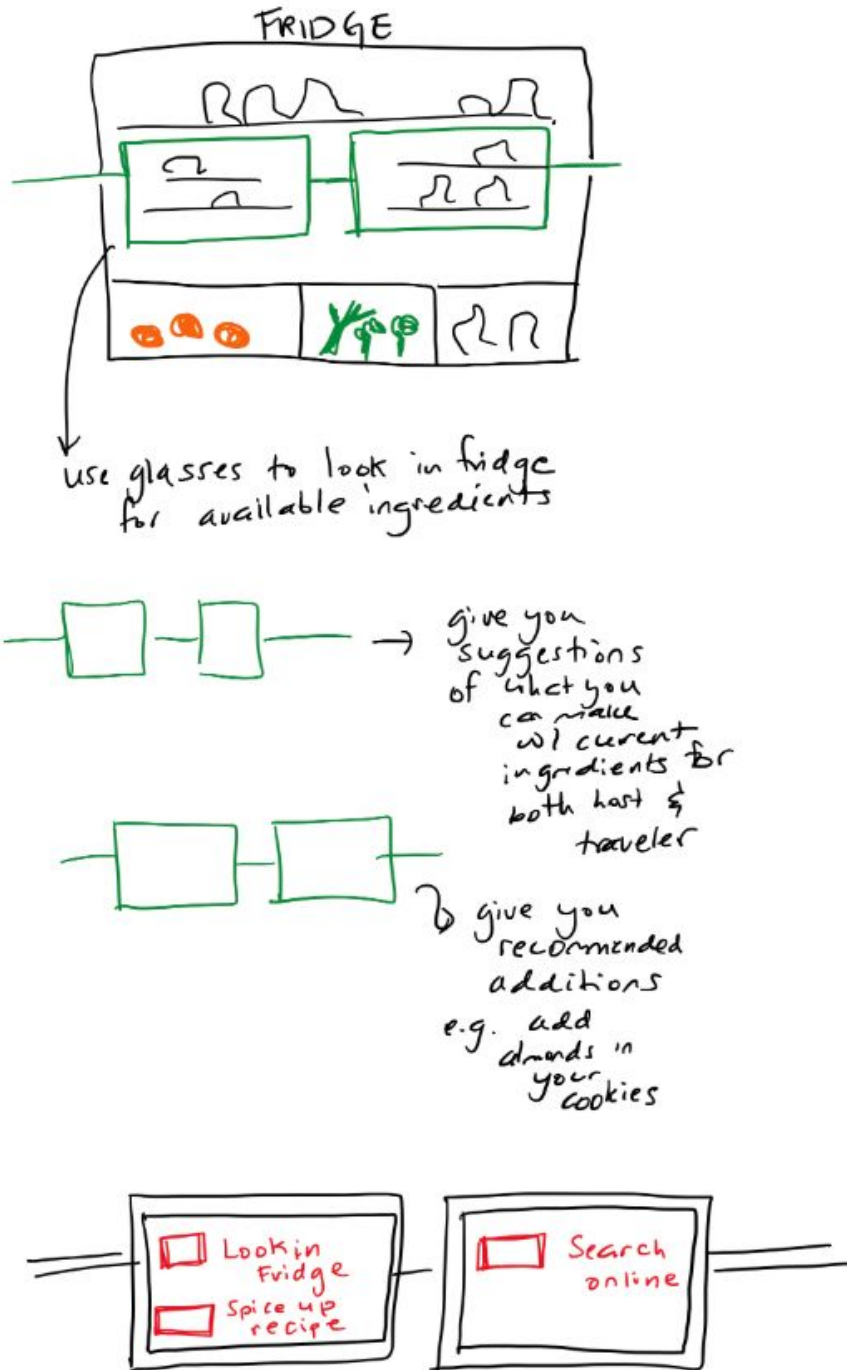 FRIDGE
use glasses to look in fridge
for available ingredients
give you
suggestions
of what you
can make
w/ current
ingredients for
both host &
traveler
give you
recommended
additions
e.g. add
almonds in
your
cookies
Look in
Fridge
Spice up
recipe
Search
online